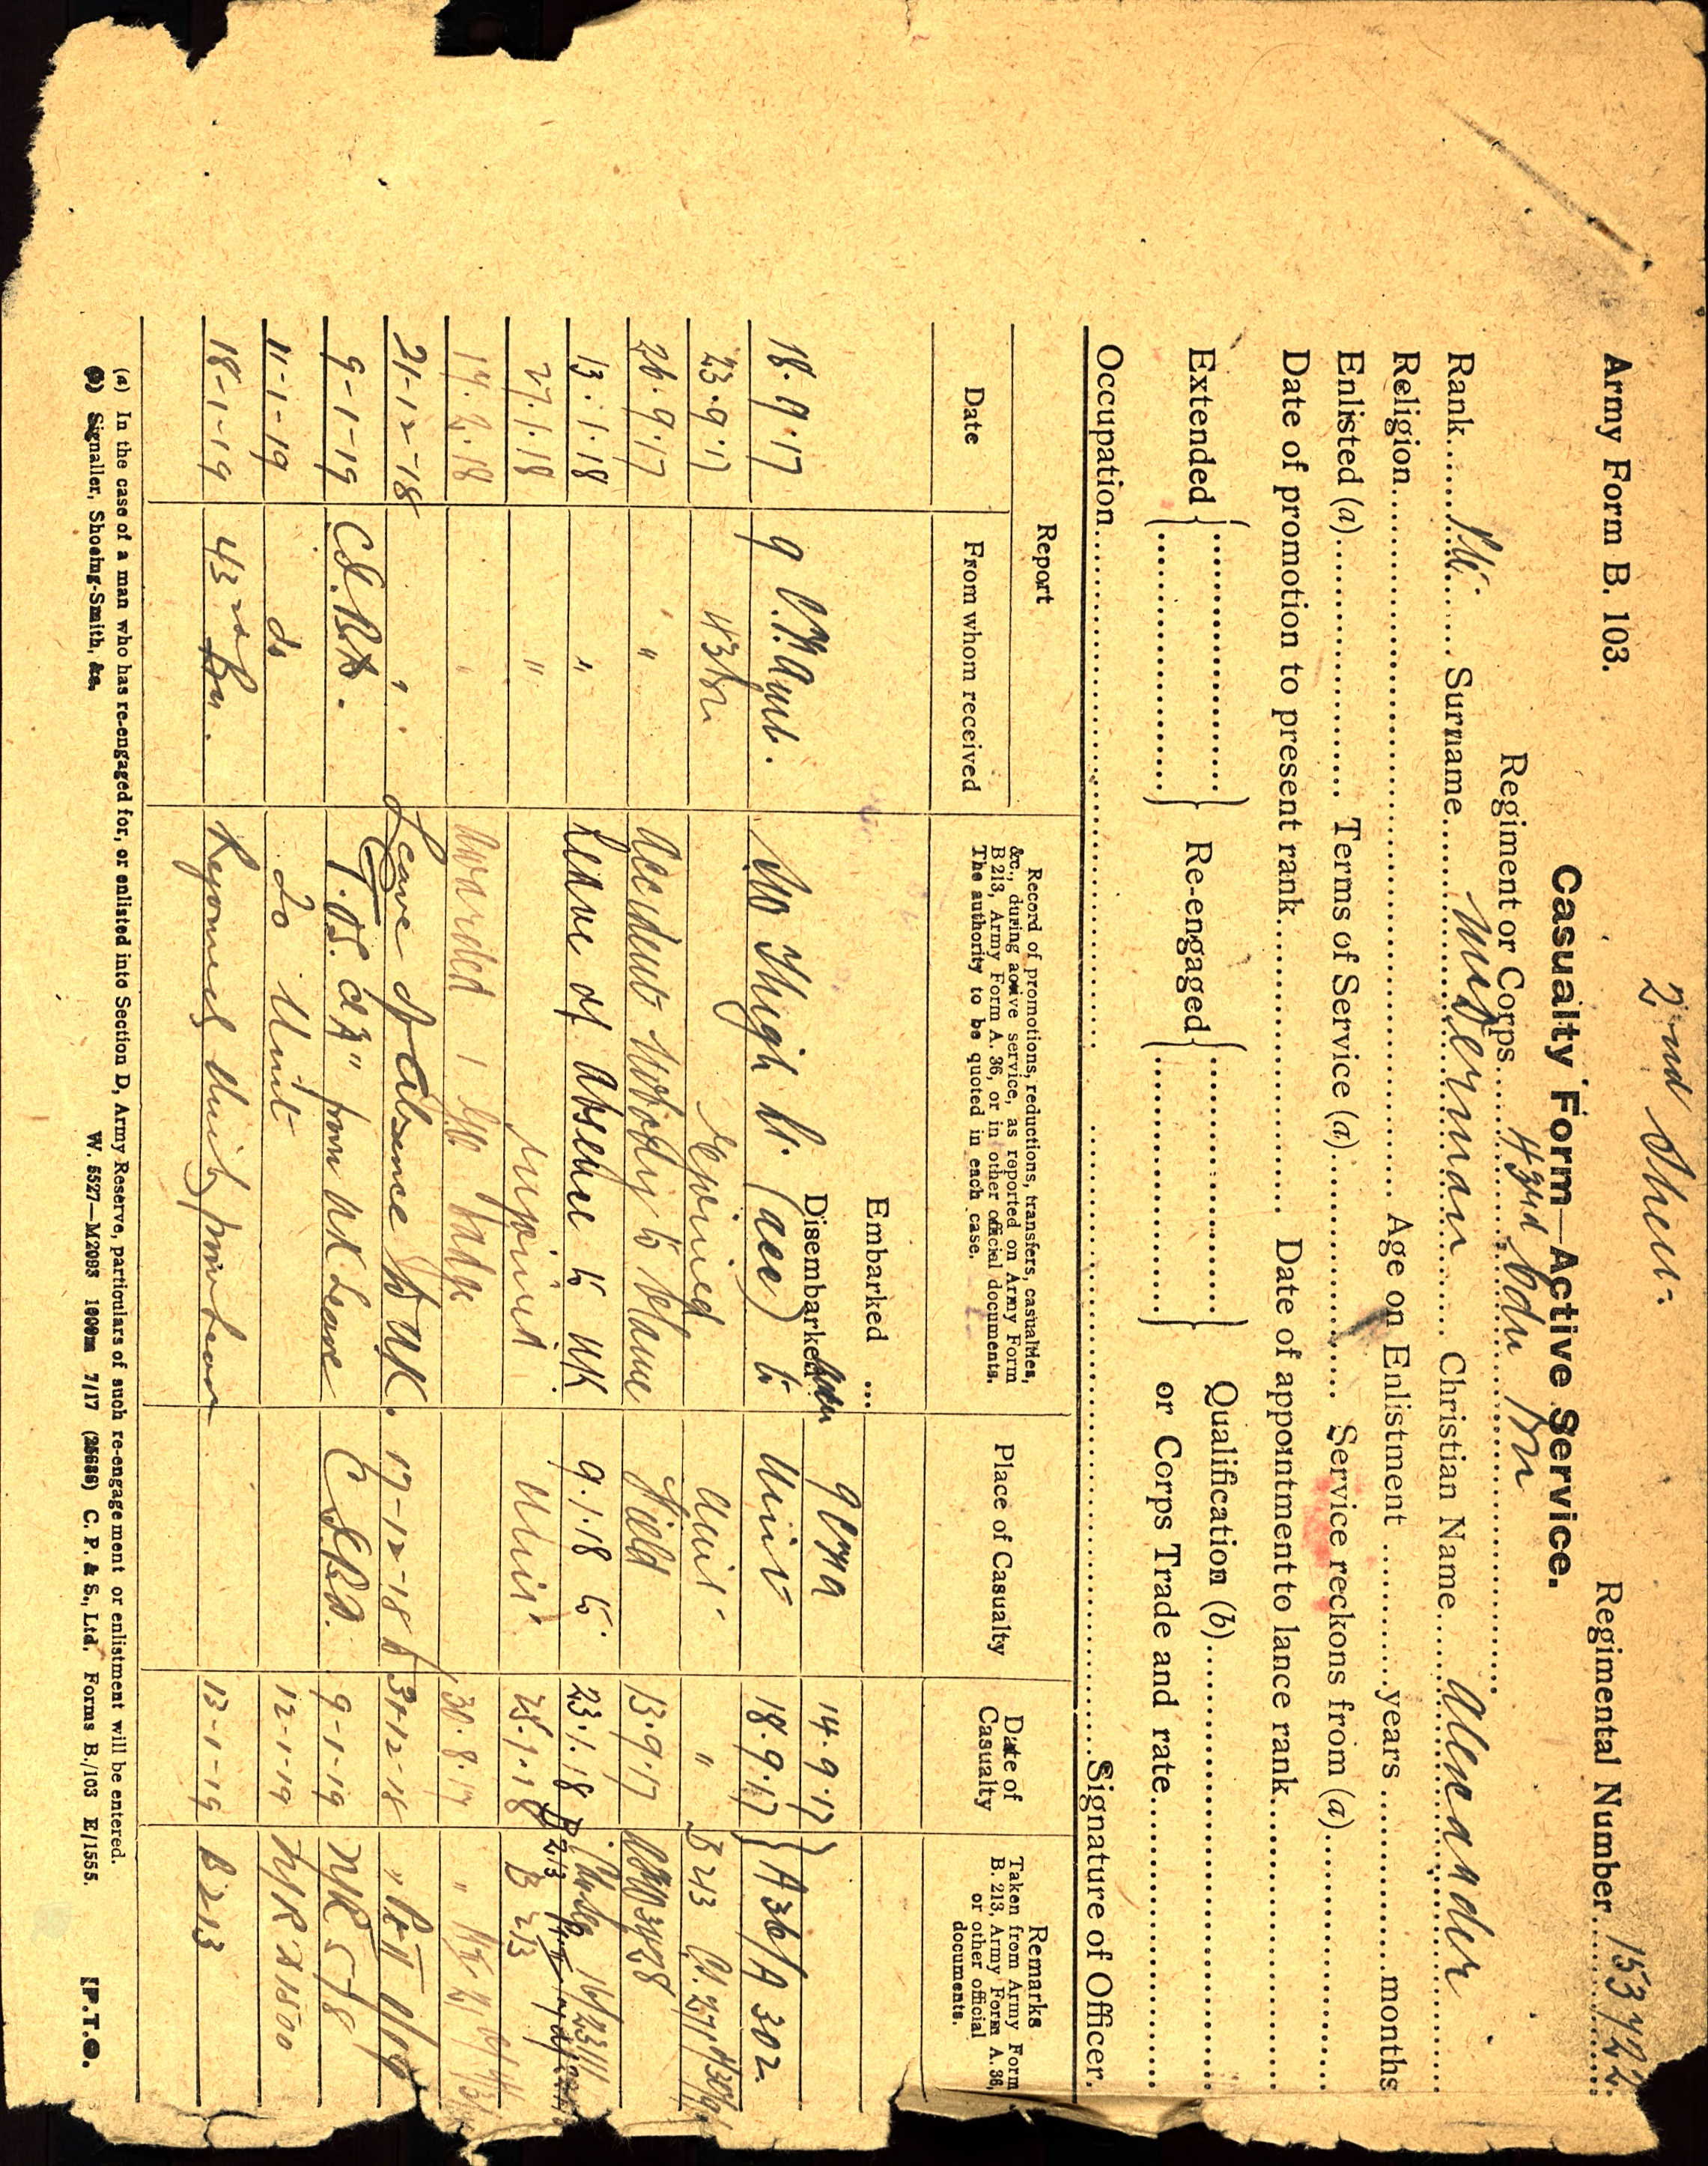 2nd Sheet.
Army Form B. 103.
Casualty Form—Active Service.
Regimental Number 153722.
Regiment or Corps 43rd Cdn Bn
Rank Pte. Surname Alexander
Christian Name Alexander
Religion Age on Enlistment years months
Enlisted (a) Terms of Service (a) Service reckons from (a)
Date of promotion to present rank Date of appointment to lance rank
Extended Re-engaged Qualification (b)
or Corps Trade and rate
Occupation Signature of Officer.
Report
Date From whom received
Record of promotions, reductions, transfers, casualties,
&c., during active service, as reported on Army Form
B 213, Army Form A. 36, or in other official documents.
The authority to be quoted in each case.
Place of Casualty
Date of
Casualty
Remarks
Taken from Army Form
B. 213, Army Form A. 36,
or other official
documents.
Embarked ...
Disembarked 14.9.17
18.9.17 9 C.F.Amb. Thigh lt. (acc) to Unit 18.9.17 A36/A302.
23.9.17 43 Bn Rejoined Unit " B213
26.9.17 " Accident Nobody to blame Field 13.9.17
13.1.18 " Leave of absence to UK 9.1.18 to 23.1.18
27.1.18 " rejoined Unit B 213
" awarded 1 GC Badge 30.8.17 "
21-12-18 " Leave of Absence to UK. 17-12-18 to 31-12-18 " Pt II
9-1-19 from UK Leave 9-1-19 N/R 578
11-1-19 do To Unit 12-1-19 N/R
18-1-19 43rd Bn. Rejoined Unit from leave 13-1-19 B213
(a) In the case of a man who has re-engaged for, or enlisted into Section D, Army Reserve, particulars of such re-engagement or enlistment will be entered.
(b) Signaller, Shoeing-Smith, &c.
W. 5527—M2093 1000m 7/17 (25688) C. P. & S., Ltd. Forms B./103 E/1555.
[P.T.O.